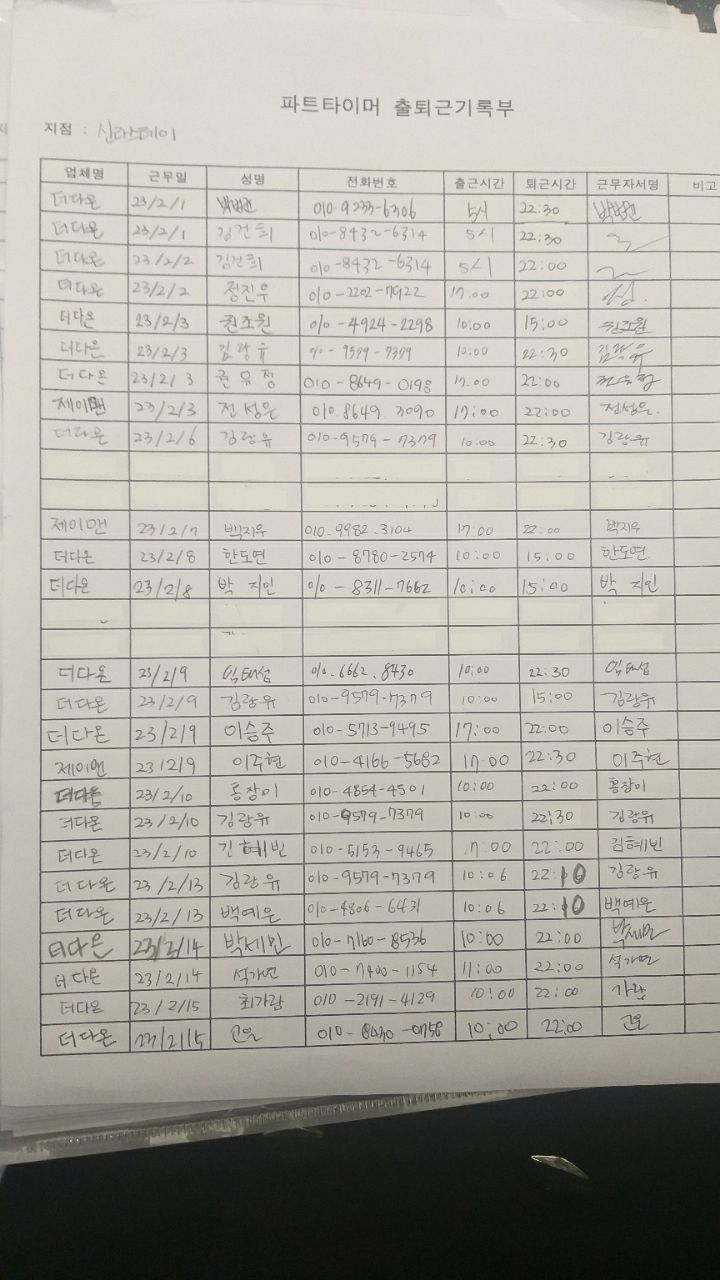 파트타이머 출퇴근기록부
지점 : 신라스테이
업체명 근무일 성명 전화번호 출근시간 퇴근시간 근무자서명 비고
더다온 23/2/1 010-9233-6306 5시 22:30
더다온 23/2/1 김건희 010-8432-6314 5시 22:30
더다온 23/2/2 김건희 010-8432-6314 5시 22:00
더다온 23/2/2 정진우 010-2202-7922 17:00 22:00
더다온 23/2/3 권조원 010-4924-2298 10:00 15:00 권조원
더다온 23/2/3 김광유 010-9579-7379 10:00 22:30 김광유
더다온 23/2/3 권유정 010-8649-0198 17.00 22:00
제이맨 23/2/3 전성은 010.8649 3090 17:00 22:00 전성은.
더다온 23/2/6 김광유 010-9579-7379 10:00 22:30 김광유
제이맨 23/2/7 백지우 010.9982.3104 17:00 22:00 백지우
더다온 23/2/8 한도연 010-8780-2574 10:00 15:00 한도연
더다온 23/2/8 박 지인 010-8311-7662 10:00 15:00 박 지인
더다온 23/2/9 임태섭 010.6662.8430 10:00 22:30 임태섭
더다온 23/2/9 김광유 010-9579-7379 10:00 15:00 김광유
더다온 23/2/9 이승주 010-5713-9495 17:00 22:00 이승주
제이맨 23/2/9 이주현 010-4166-5682 17:00 22:30 이주현
더다온 23/2/10 홍장이 010-4854-4501 10:00 22:00 홍장이
더다온 23/2/10 김광유 010-9579-7379 10:00 22:30 김광유
더다온 23/2/10 김혜빈 010-5153-9465 17:00 22:00 김혜빈
더다온 23/2/13 김광유 010-9579-7379 10:06 22:10 김광유
더다온 23/2/13 백예은 010-4806-6431 10:06 22:10 백예은
더다온 23/2/14 박세민 010-7160-8536 10:00 22:00 박세민
더다온 23/2/14 석가연 010-7400-1154 11:00 22:00 석가연
더다온 23/2/15 최가람 010-2191-4129 10:00 22:00 가람
더다온 23/2/15 고은 010-8430-0758 10:00 22:00 고은